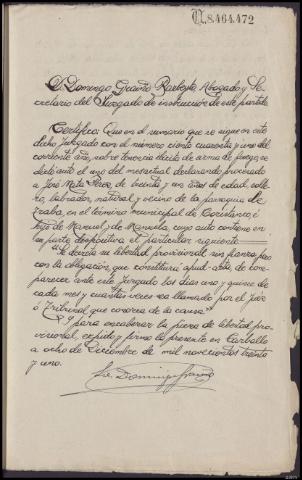 N.8.464.472
D. Domingo Graiño Abogado y Se-
cretario del Juzgado de instrucción de este partido.
Certifico: Que en el sumario que se sigue en este
dicho Juzgado con el número ciento cuarenta y uno del
corriente año, sobre tenencia ilícita de arma de fuego, se
dictó auto el uno del mes actual declarando procesado
a José Mata de treinta y un años de edad, solte-
ro, labrador, natural y vecino de la parroquia de
Traba, en el término municipal de Coristanco, é
hijo de Manuel y de Manuela, cuyo auto contiene en
su parte dispositiva el particular siguiente:
"Se decreta su libertad provisional sin fianza pero
con la obligación, que constituirá apud-acta, de com-
parecer ante este Juzgado los dias uno y quince de
cada mes y cuantas veces sea llamado por el juez
ó Tribunal que conozca de la causa"
Y para encabezar la pieza de libertad pro-
visional, expido y firmo la presente en Carballo
a ocho de Diciembre de mil novecientos treinta
y uno.
Domingo Graiño